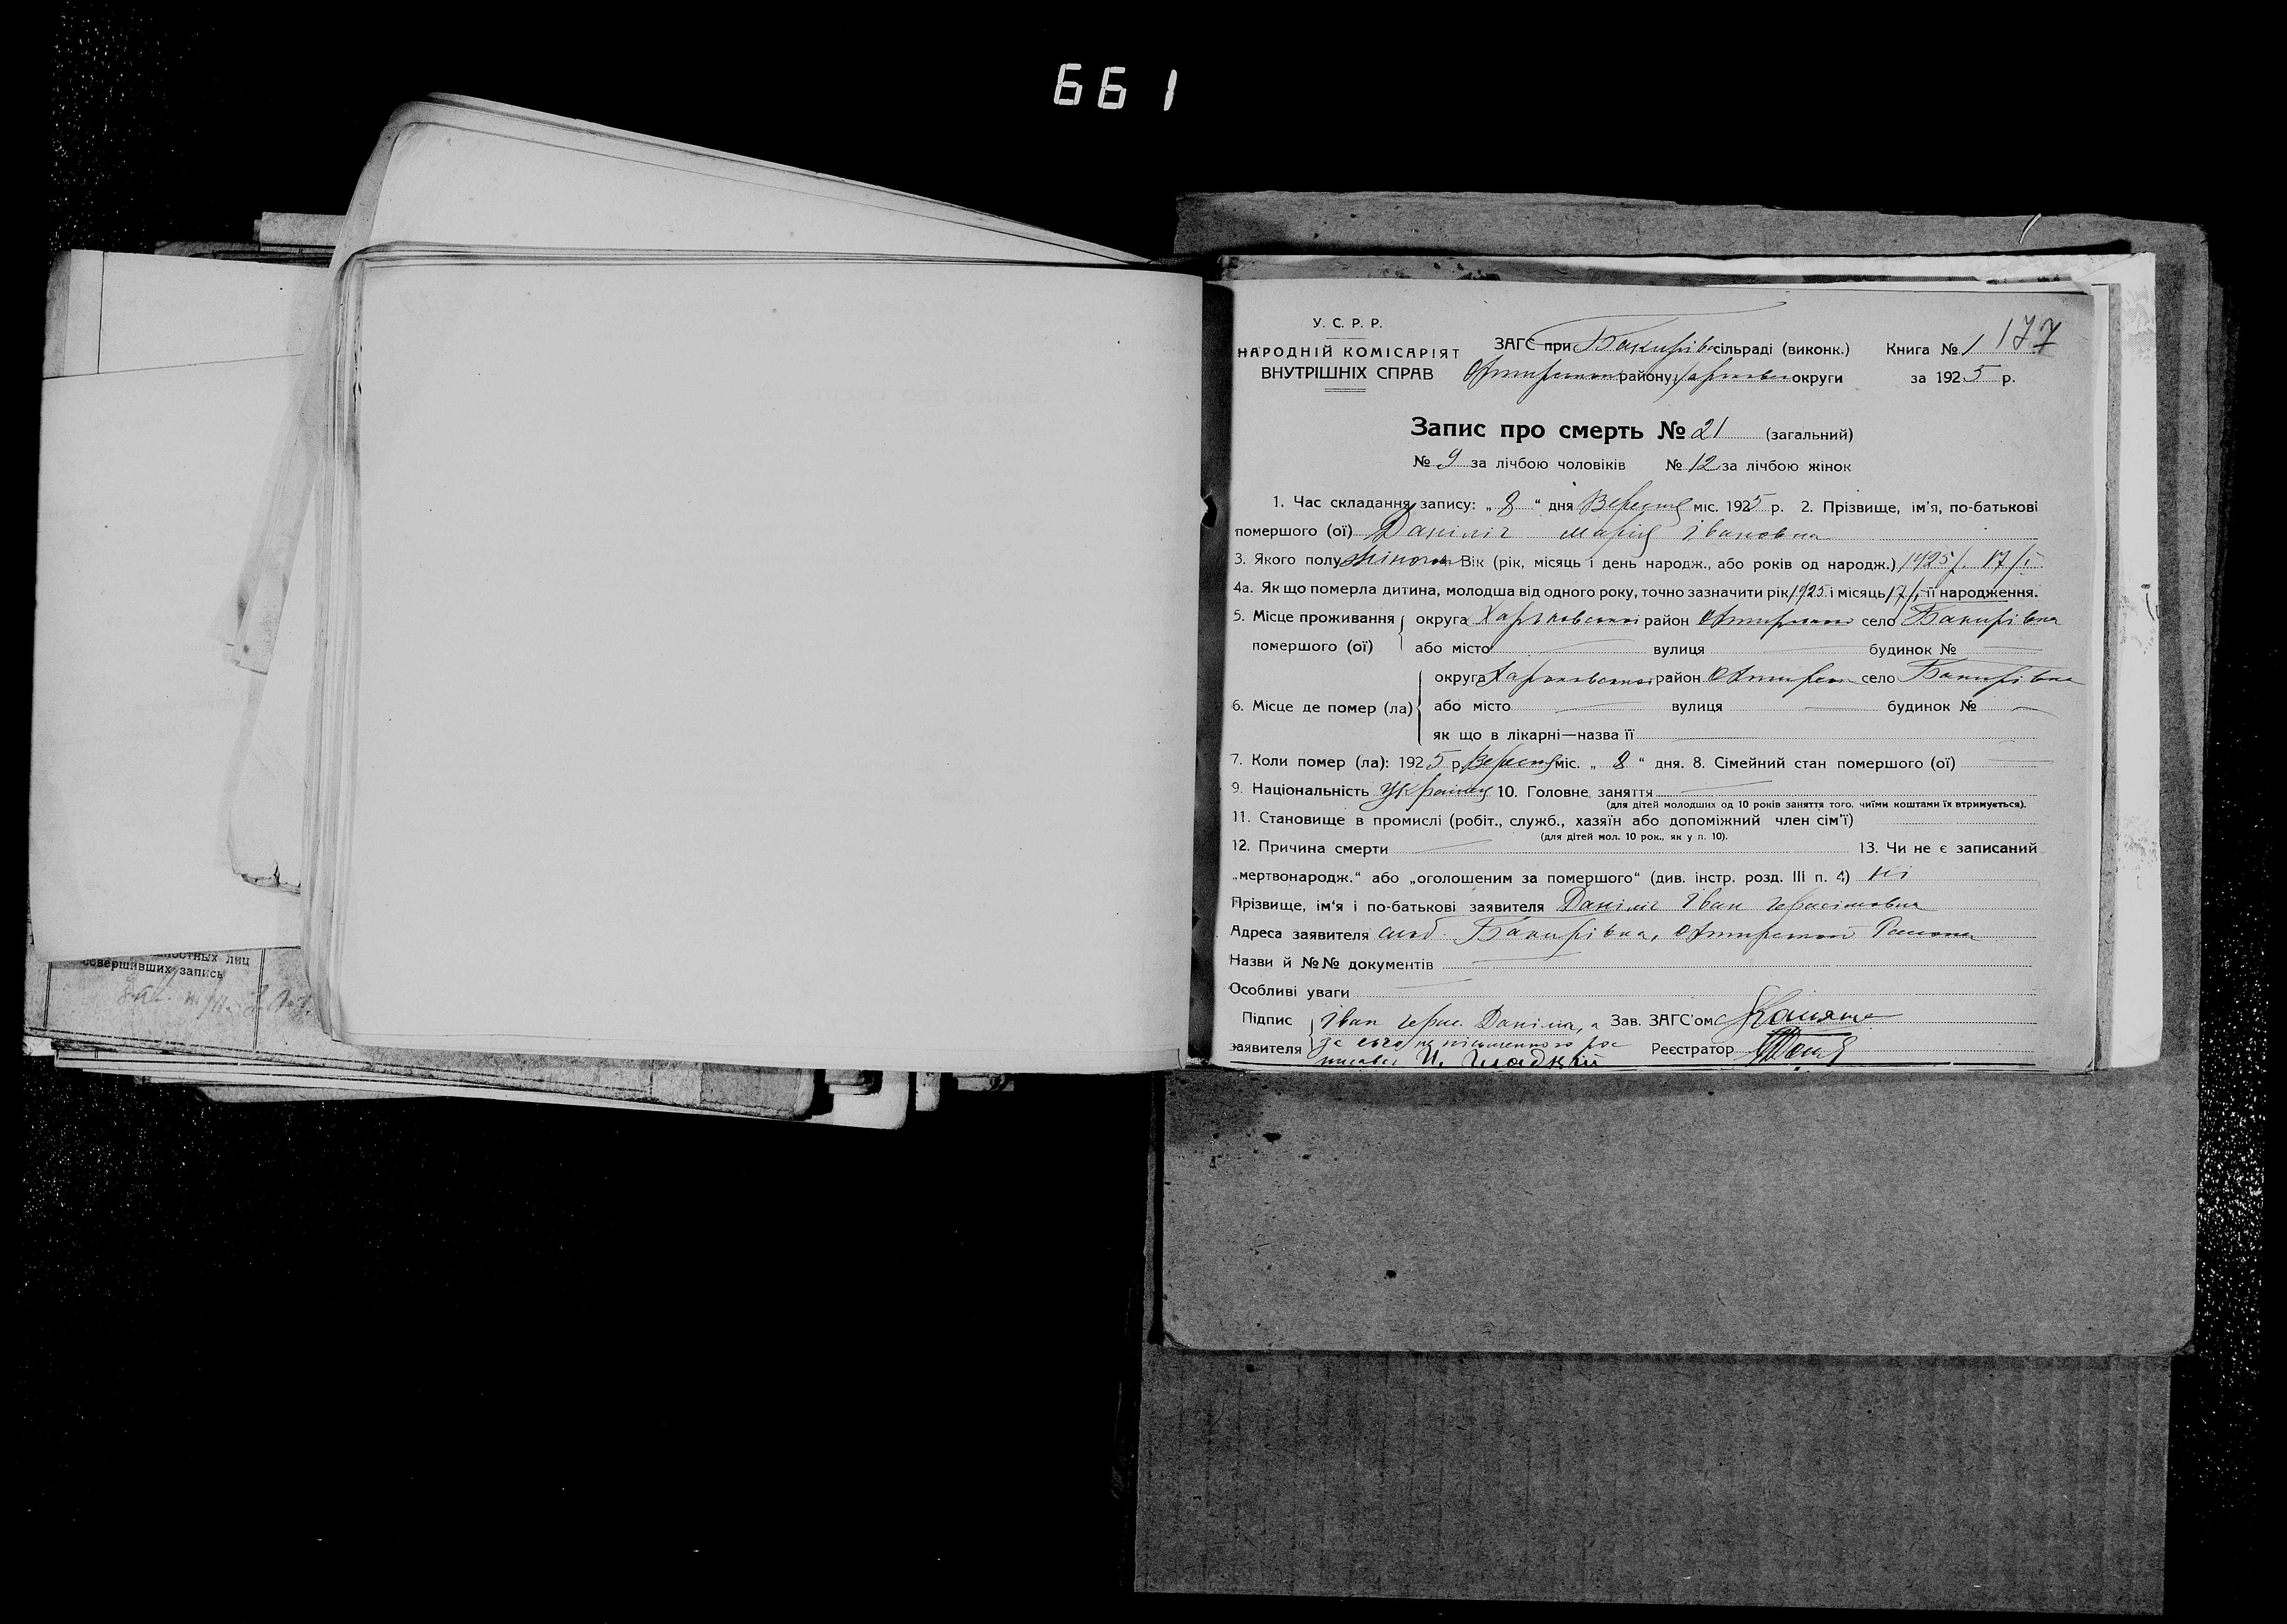 661
У. С. Р. Р.
НАРОДНІЙ КОМІСАРІЯТ
ВНУТРІШНІХ СПРАВ
ЗАГС при Бакирівс сільраді (виконк.)
району округи
Книга № 1
177
за 1925 р.
Запис про смерть № 21 (загальний)
№ 9 за лічбою чоловіків № 12 за лічбою жінок
1. Час складання запису: „ 8 “ дня Вересня міс. 1925 р. 2. Прізвище, ім'я, по-батькові
помершого (ої) Даніліч Марія Івановна
3. Якого полу жіночого Вік (рік, місяць і день народж., або років од народж.) 1925 р. 17/I
4а. Як що померла дитина, молодша від одного року, точно зазначити рік 1925 і місяць 17/I її народження.
5. Місце проживання помершого (ої)
округа Харьковской район село Бакирівка
або місто вулиця будинок №
6. Місце де помер (ла)
округа Харьковской район село Бакирівка
або місто вулиця будинок №
як що в лікарні—назва її
7. Коли помер (ла): 1925 р. Вересня міс. „ 8 “ дня. 8. Сімейний стан помершого (ої)
9. Національність 10. Головне заняття
(для дітей молодших од 10 років заняття того, чиїми коштами їх втримується).
11. Становище в промислі (робіт., служб., хазяїн або допоміжний член сім'ї)
(для дітей мол. 10 рок., як у п. 10).
12. Причина смерти 13. Чи не є записаний
„мертвонародж.“ або „оголошеним за помершого“ (див. інстр. розд. III п. 4) ні
Прізвище, ім'я і по-батькові заявителя Даніліч Іван
Адреса заявителя слоб. Бакирівка,
Назви й №№ документів
Особливі уваги
Підпис заявителя
Іван Герас. Даніліч, а
за его не письменного рос
писавсь И. Гладкий
Зав. ЗАГС'ом
Реєстратор
ностных лиц
совершивших запись